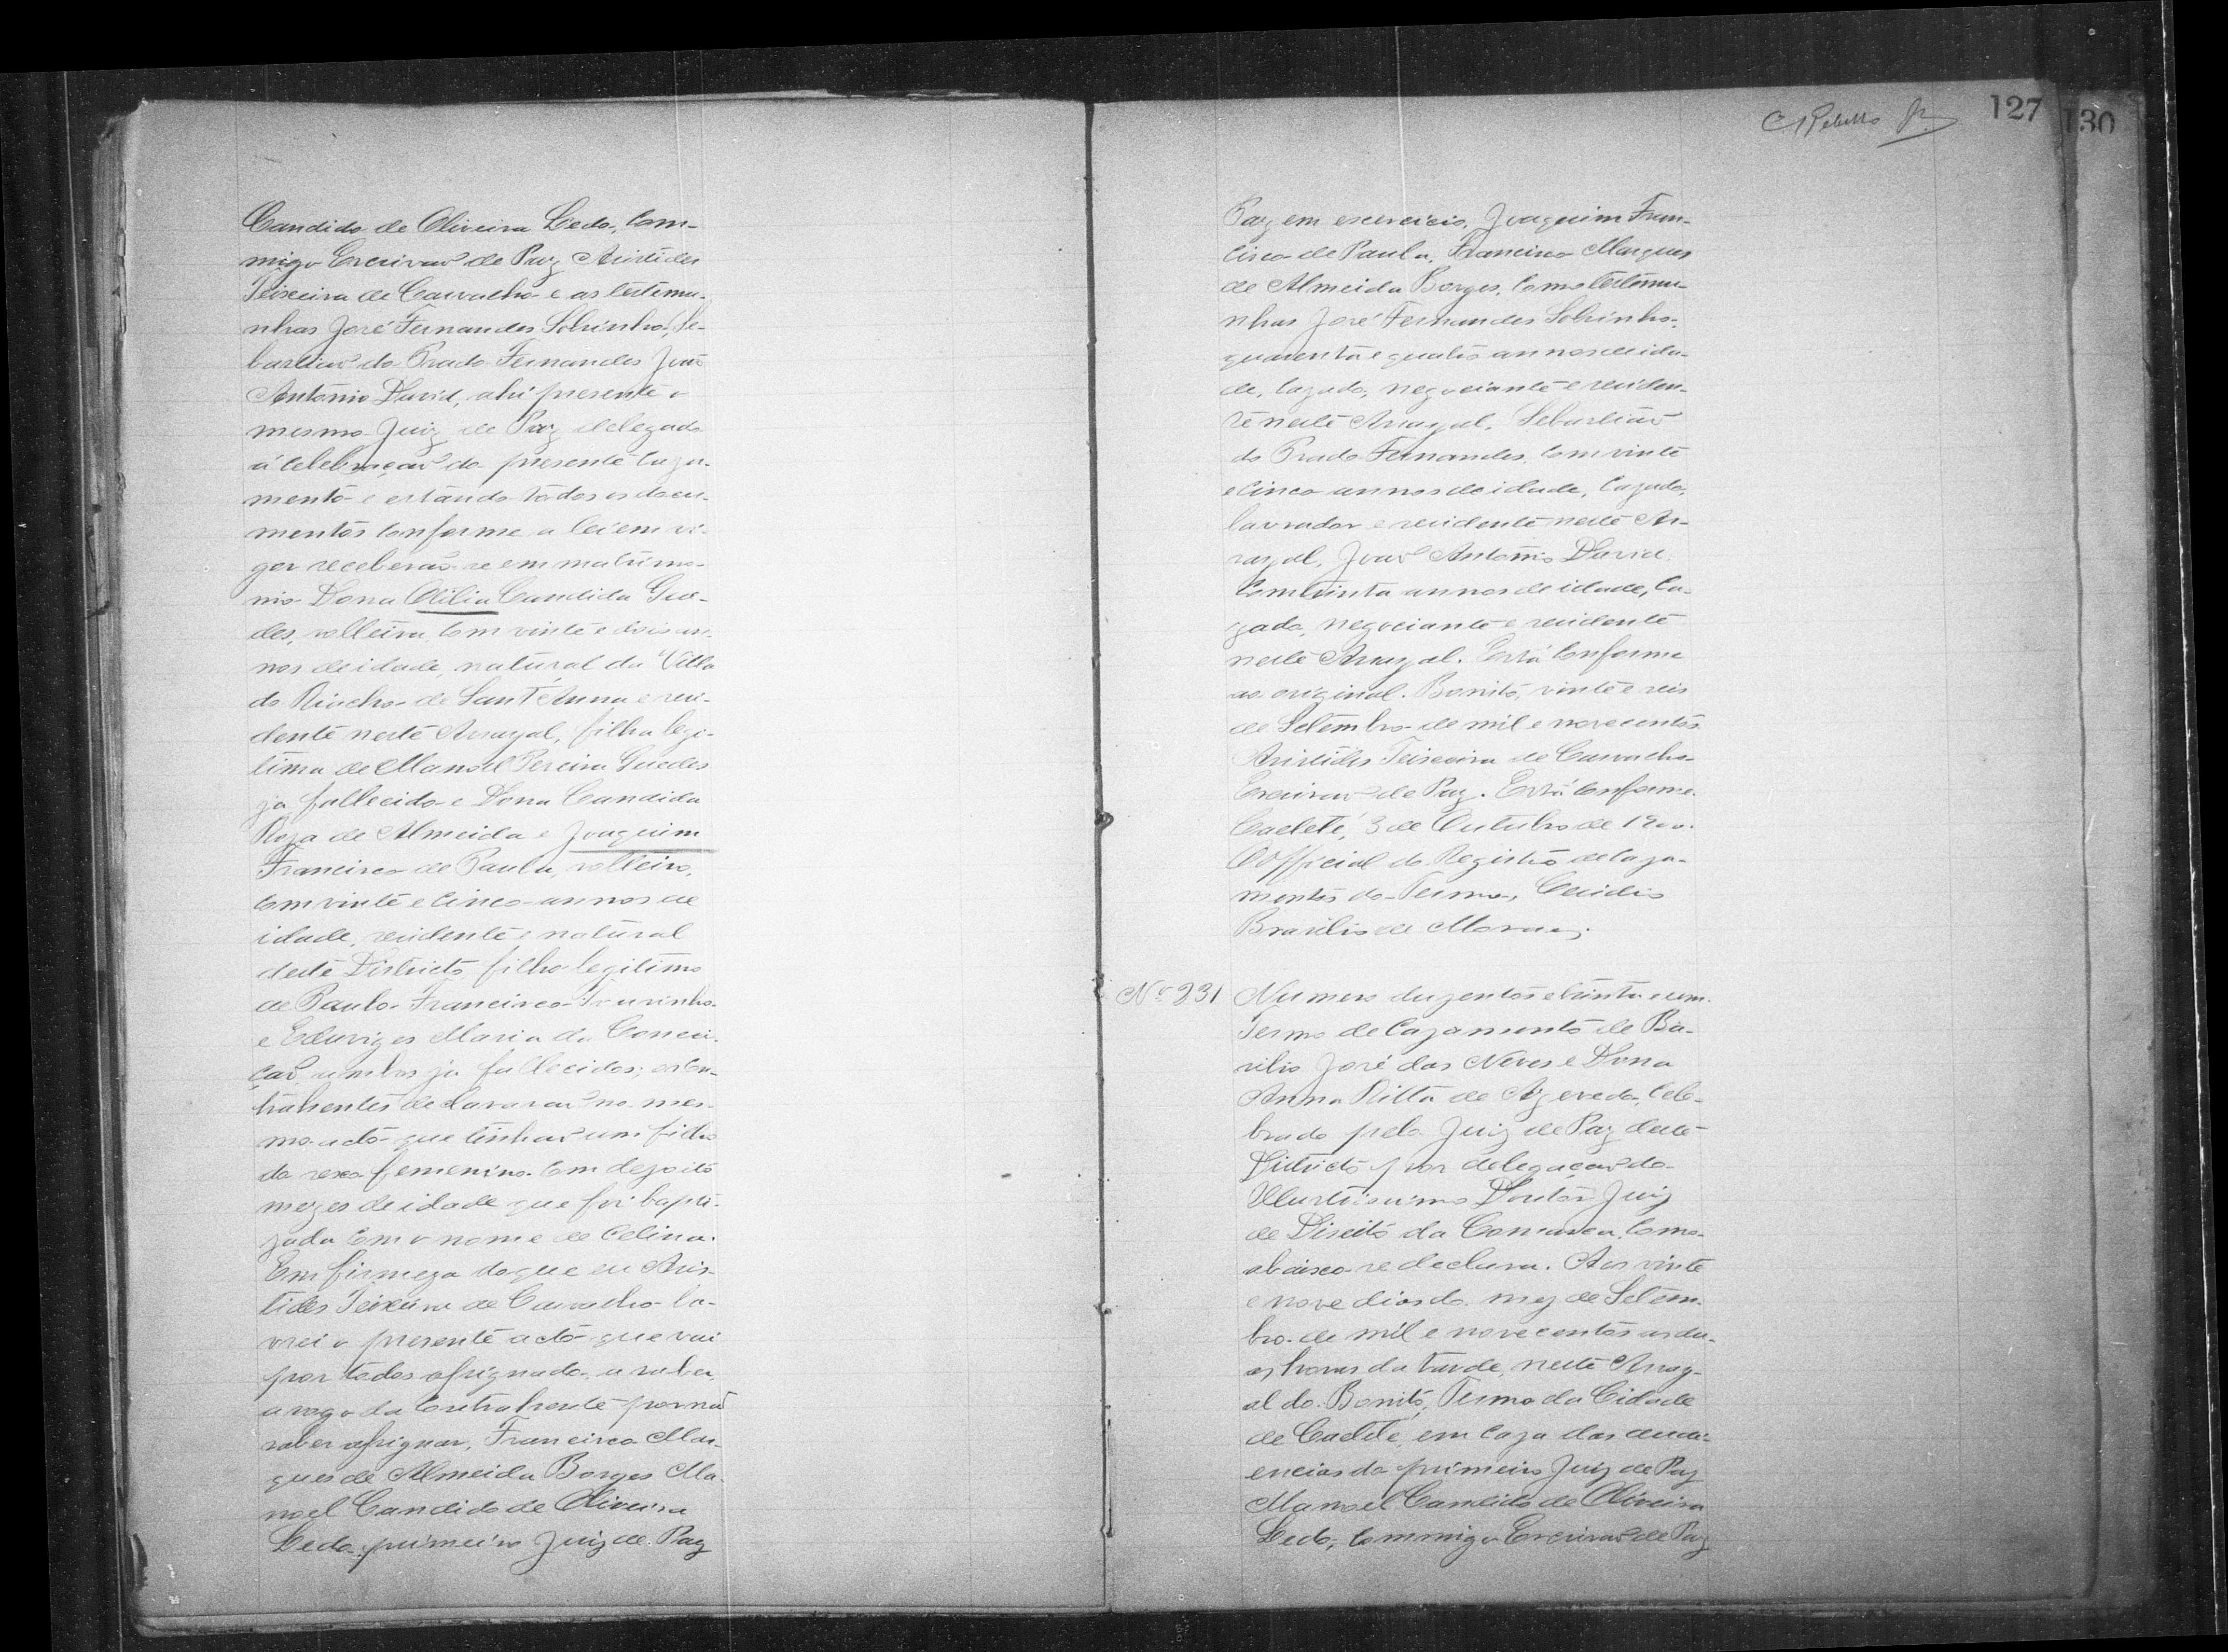 Candido de Oliveira Ledo, Com-
migo Escrivaõ de Paz Aristides
Teixeira de Carvalho e as testemu-
nhas José Fernandes Sobrinho, Se-
bastiaõ do Prado Fernandes Joaõ
Antonio David, ahi presente o
mesmo Juiz de Paz delegado
á Celebraçaõ do presente Caza-
mento e estando todos os docu-
mentos Conforme a lei em vi-
gor receberaõ-se em matrimo-
nio Dona Otilia Candida Gue-
des, solteira, Com vinte e dois an-
nos de idade, natural da Villa
do Riacho de Sant'Anna e resi-
dente neste Arrayal, filha legi-
tima de Manoel Pereira Guedes
ja fallecido e Dona Candida
Roza de Almeida e Joaquim
Francisco de Paula, solteiro,
Com vinte e Cinco annos de
idade, residente e natural
deste Districto filho legitimo
de Paulo Francisco Tourinho
e Eduviges Maria da Concei-
çaõ, ambos ja fallecidos; os Con-
trahentes declararaõ no mes-
mo acto que tinhaõ um filho
do sexo femenino Com dezoito
mezes de idade que foi bapti-
zada Com o nome de Celina.
Em firmeza do que eu Aris-
tides Teixeira de Carvalho la-
vrei o presente acto que vai
por todos assignado a saber,
a rogo da Contrahente por naõ
saber assignar, Francisco Mar-
ques de Almeida Borges Ma-
noel Candido de Oliveira
Ledo, primeiro Juiz de Paz
127 130
Paz em exercicio, Joaquim Fran-
cisco de Paula, Francisco Marques
de Almeida Borges, Como testemu-
nhas José Fernandes Sobrinho,
quarenta e quatro annos de ida-
de, Cazado, negociante e residen-
te neste Arrayal, Sebastiaõ
do Prado Fernandes, Com vinte
e Cinco annos de idade, Cazado,
lavrador e residente neste Ar-
rayal, Joaõ Antonio David,
Com trinta annos de idade, Ca-
zado, negociante e residente
neste Arrayal. Está Conforme
ao original. Bonito, vinte e seis
de Setembro de mil e novecentos
Aristides Teixeira de Carvalho
Escrivaõ de Paz. Está Conforme.
Caeteté, 3 de Outubro de 1900.
O Official do Registro de Caza-
mentos do Termo,
Brasilio de Moraes.
Nº 231 Numero duzentos e trinta e um.
Termo de Cazamento de Ba-
silio José das Neves e Dona
Anna Ritta de Azevedo, Cele-
brado pelo Juiz de Paz deste
Districto por delegaçaõ do
Illustrissimo Doutor Juiz
de Direito da Comarca, Como
abaixo se declara. Aos vinte
e nove dias do mez de Setem-
bro de mil e novecentos as du-
as horas da tarde, neste Array-
al do Bonito, Termo da Cidade
de Caeteté em Caza das audi-
encias do primeiro Juiz de Paz
Manoel Candido de Oliveira
Ledo, Commigo Escrivaõ de Paz